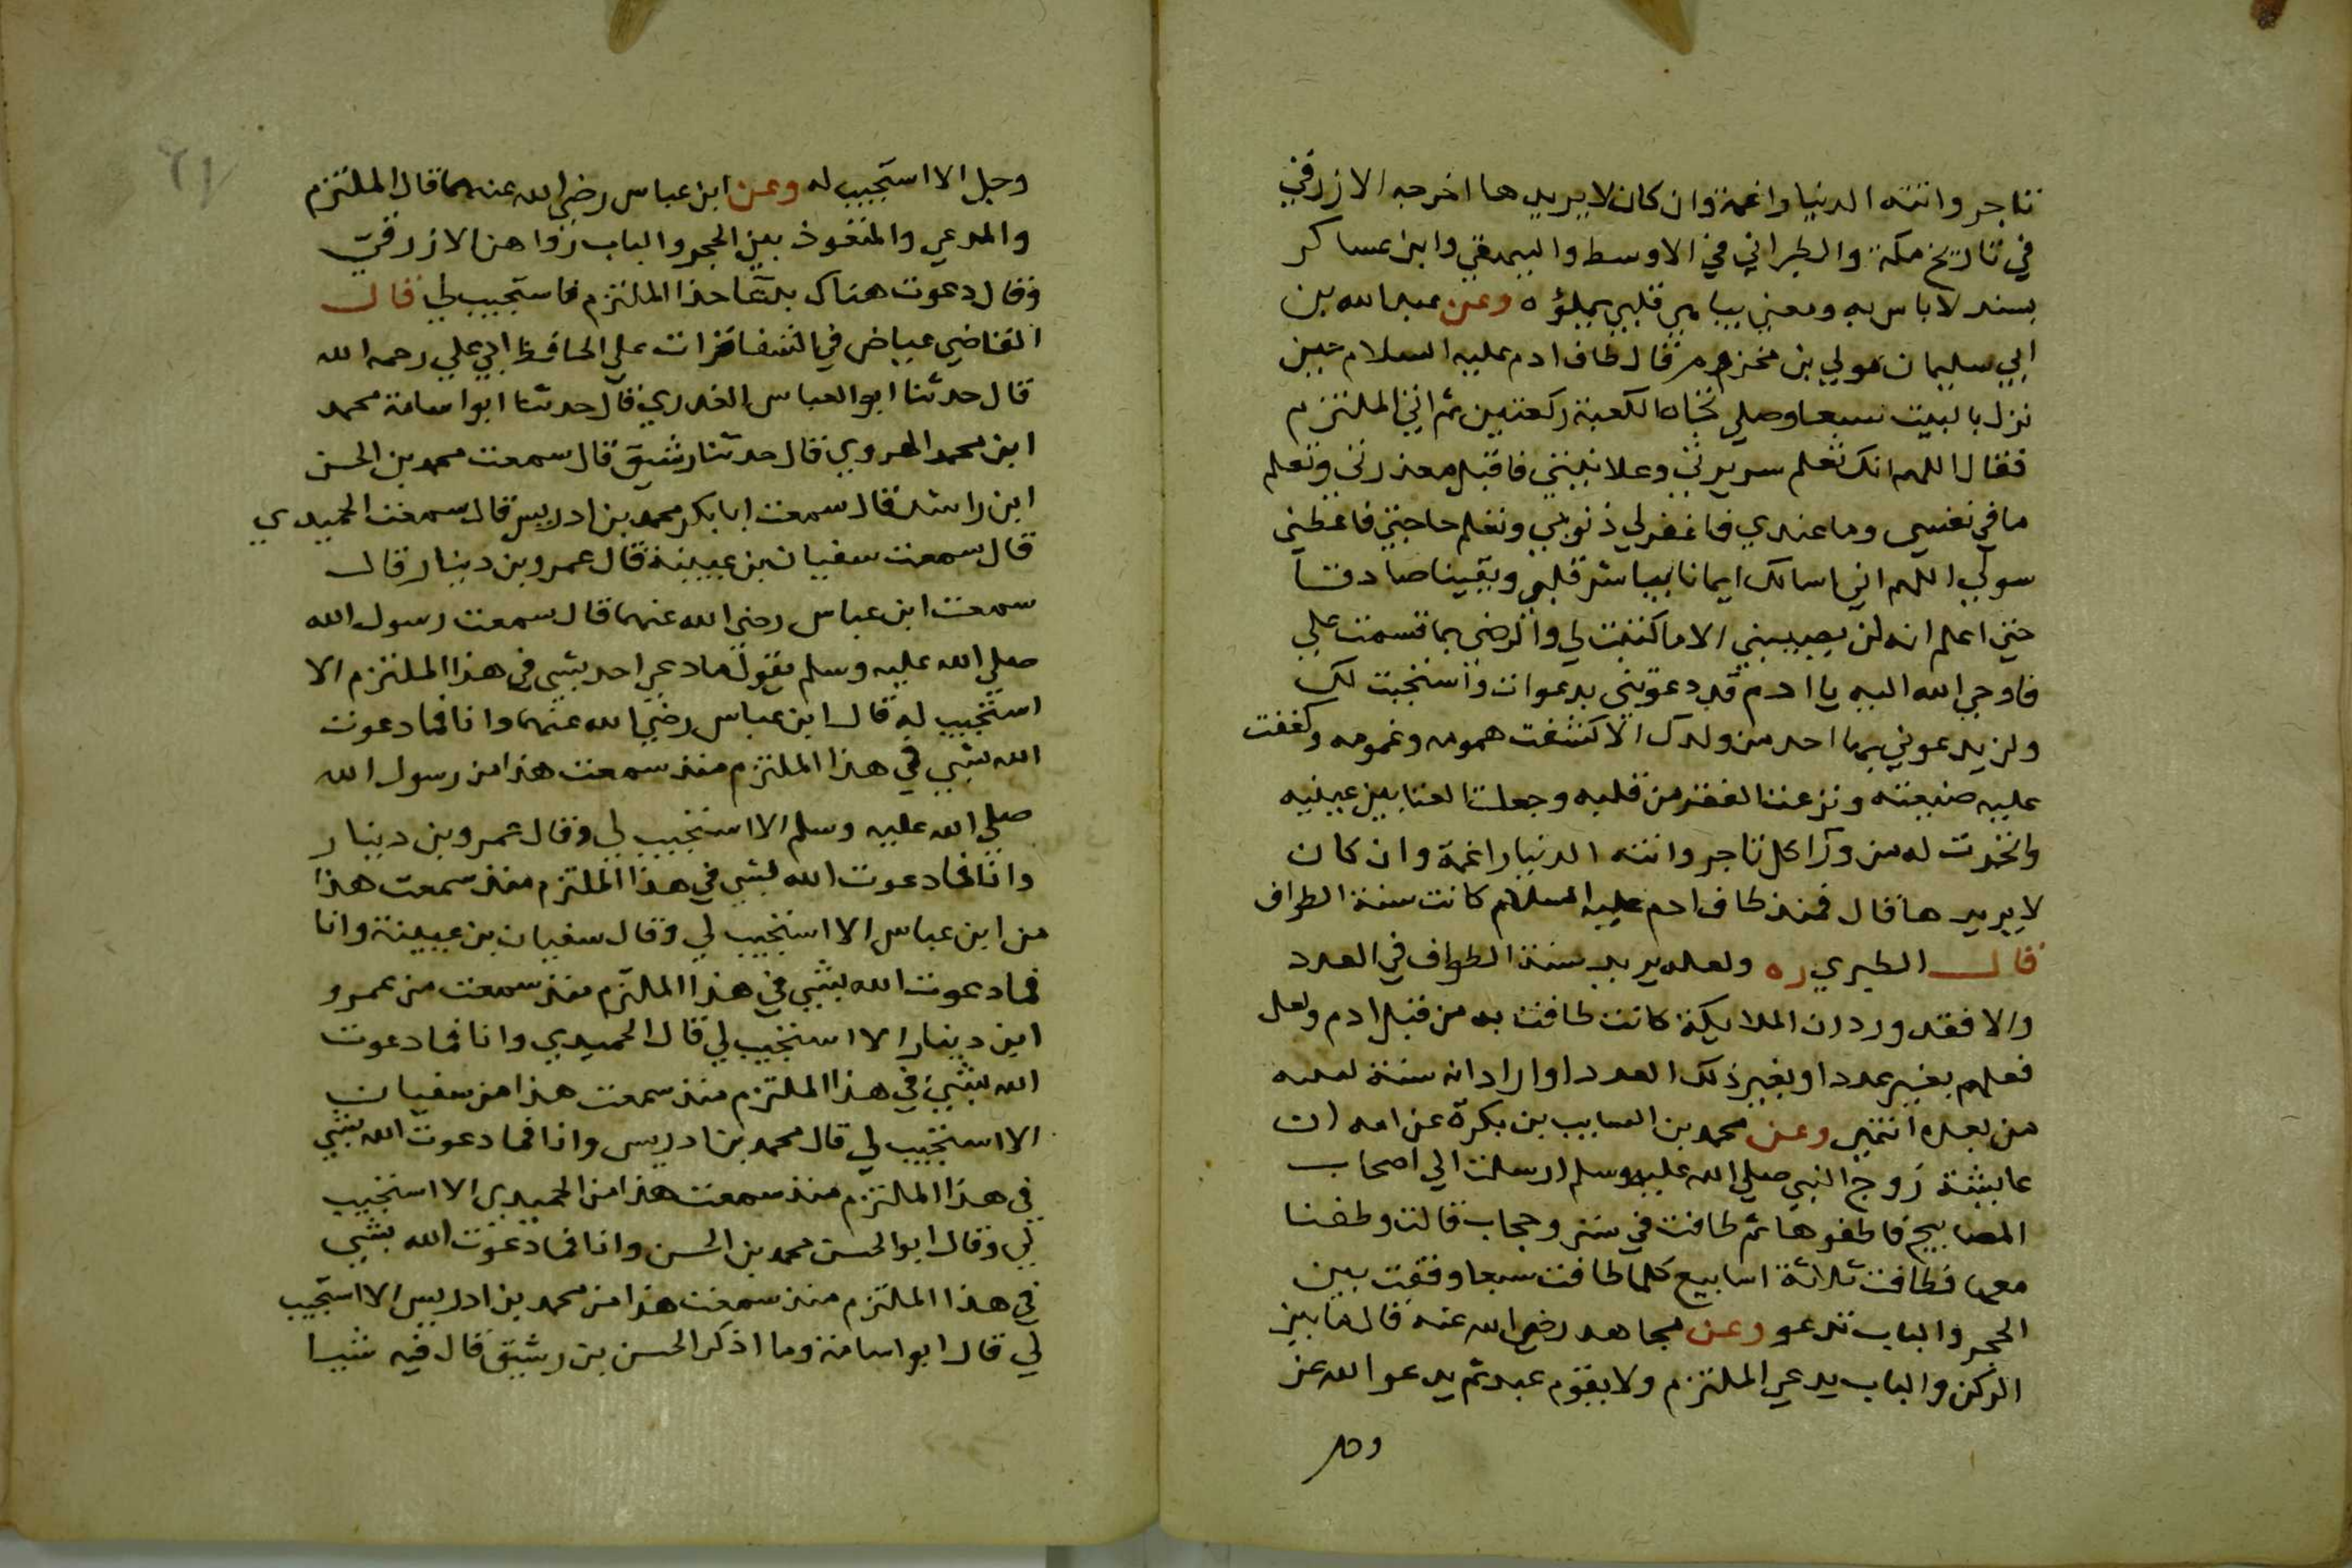 تاجر واتته الدنيا راغمة وان كان لا يريدها اخرجه الازرقي
في تاريخ مكة والطبراني في الاوسط والبيهقي وابن عساكر
بسند لا باس به ومعني يباشر قلبي يملؤه وعن عبد الله بن
ابي سليمان مولي بن مخزوم قال طاف ادم عليه السلام حين
نزل بالبيت سبعا وصلي تجاه الكعبة ركعتين ثم اتي الملتزم
فقال اللهم انك تعلم سريرتي وعلانيتي فاقبل معذرتي وتعلم
ما في نفسي وما عندي فاغفر لي ذنوبي وتعلم حاجتي فاعطني
سولي اللهم اني اسالك ايمانا يباشر قلبي ويقينا صادقا
حتي اعلم انه لن يصيبني الا ما كتبت لي والرضي بما قسمت علي
فاوحي الله اليه يا ادم قد دعوتني بدعوات واستجبت لك
ولن يدعوني بها احد من ولدك الا كشفت همومه وغمومه وكففت
عليه ضيعته ونزعت الفقر من قلبه وجعلت الغنا بين عينيه
واتجرت له من ورآ كل تاجر واتته الدنيا راغمة وان كان
لا يريدها قال فمنذ طاف ادم عليه السلام كانت سنة الطواف
قال الطبري ره ولعله يريد سنة الطواف في العدد
والا فقد ورد ان الملايكة كانت طافت به من قبل ادم ولعل
فعلهم بغير عدد او بغير ذلك العدد او اراد انه سنة لمن
من بعده انتهي وعن محمد بن السايب بن بكرة عن امه ان
عايشة زوج النبي صلي الله عليه وسلم ارسلت الي اصحاب
المصابيح فاطفوها ثم طافت في ستر وحجاب قالت وطفنا
معها فطافت ثلاثة اسابيع كلما طافت سبعا وقفت بين
الحجر والباب تدعو وعن مجاهد رضي الله عنه قال ما بين
الركن والباب يدعي الملتزم ولا يقوم عبد ثم يدعو الله عز
وجل
وجل الا استجيب له وعن ابن عباس رضي الله عنهما قال الملتزم
والمدعي والمتعوذ بين الحجر والباب رواهن الازرقي
وقال دعوت هناك بدعآ حذا الملتزم فاستجيب لي قال
القاضي عياض في الشفا قرات علي الحافظ ابي علي رحمه الله
قال حدثنا ابو العباس العذري قال حدثنا ابو اسامة محمد
ابن محمد الهروي قال حدثنا رشيق قال سمعت محمد بن الحسن
ابن راشد قال سمعت ابا بكر محمد بن ادريس قال سمعت الحميدي
قال سمعت سفيان بن عيينة قال عمرو بن دينار قال
سمعت ابن عباس رضي الله عنهما قال سمعت رسول الله
صلي الله عليه وسلم يقول ما دعي احد بشي في هذا الملتزم الا
استجيب له قال ابن عباس رضي الله عنهما وانا فما دعوت
الله بشي في هذا الملتزم منذ سمعت هذا من رسول الله
صلي الله عليه وسلم الا استجيب لي وقال عمرو بن دينار
وانا فما دعوت الله بشي في هذا الملتزم منذ سمعت هذا
من ابن عباس الا استجيب لي وقال سفيان بن عيينة وانا
فما دعوت الله بشي في هذا الملتزم منذ سمعت من عمرو
ابن دينار الا استجيب لي قال الحميدي وانا فما دعوت
الله بشي في هذا الملتزم منذ سمعت هذا من سفيان
الا استجيب لي قال محمد بن ادريس وانا فما دعوت الله بشي
في هذا الملتزم منذ سمعت هذا من الحميدي الا استجيب
لي وقال ابو الحسن محمد بن الحسن وانا فما دعوت الله بشي
في هذا الملتزم منذ سمعت هذا من محمد بن ادريس الا استجيب
لي قال ابو اسامة وما اذكر الحسن بن رشيق قال فيه شيا